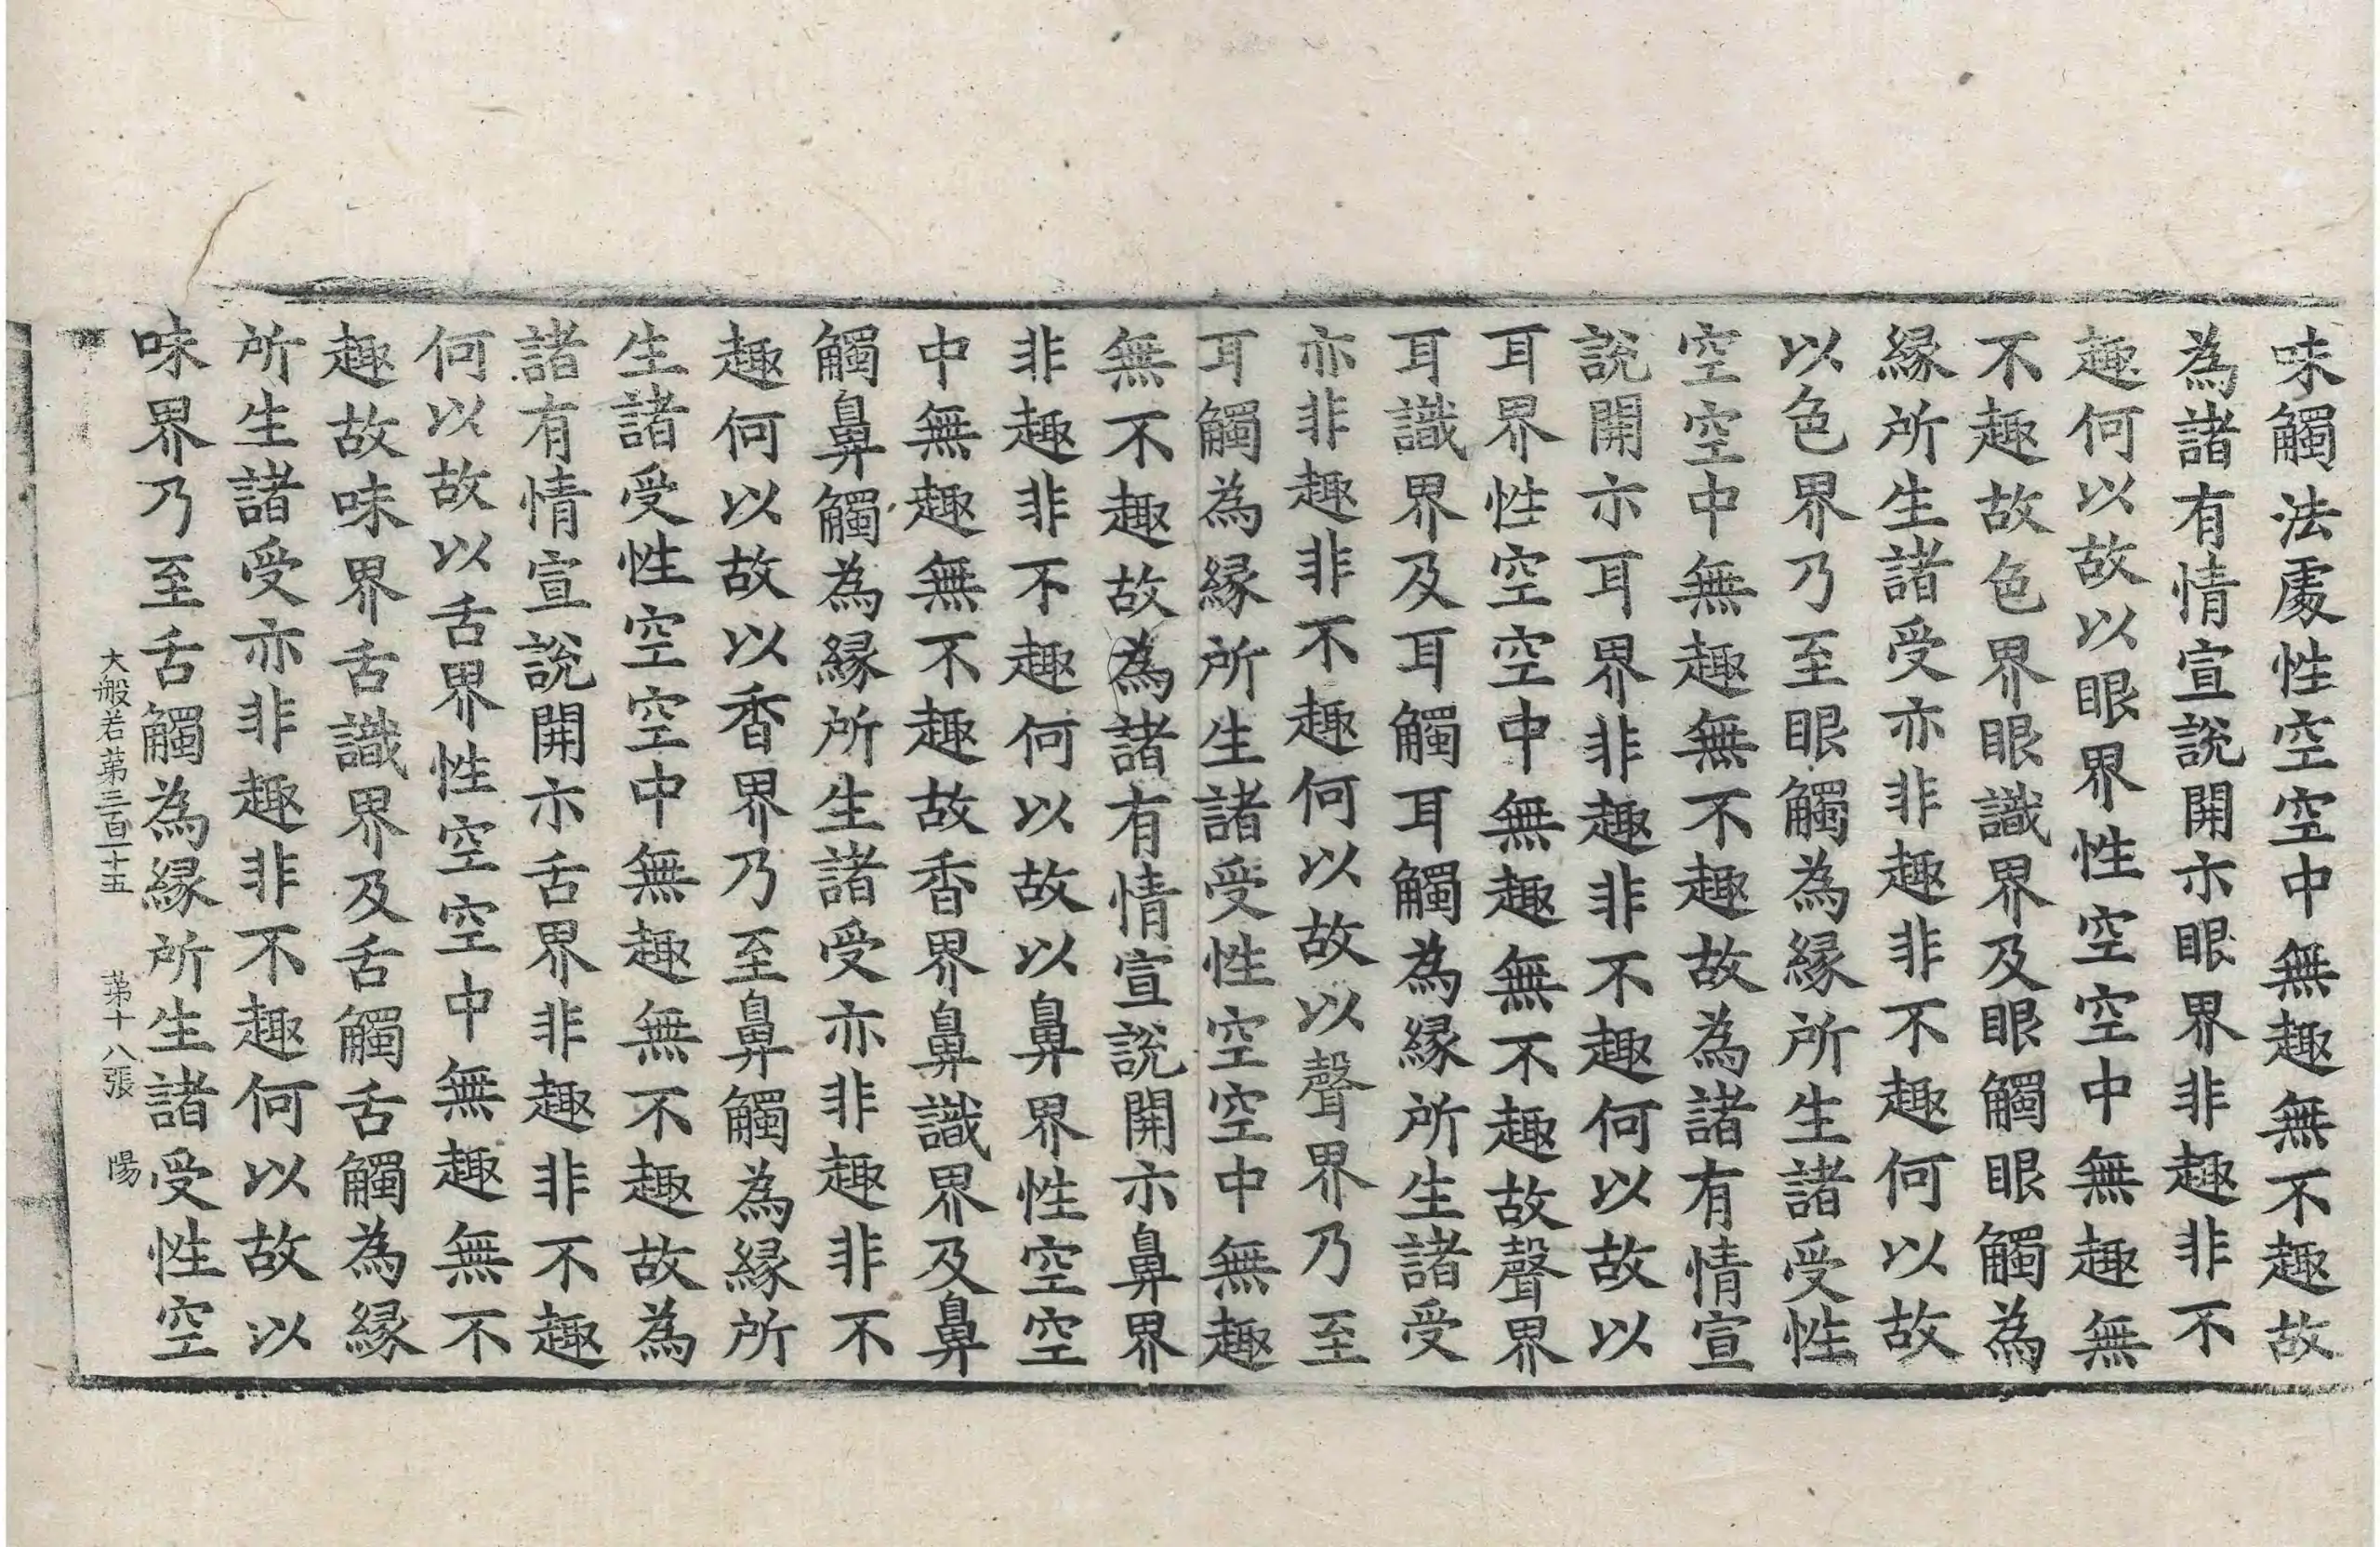 味觸法處性空空中無趣無不趣故
為諸有情宣說開示眼界非趣非不
趣何以故以眼界性空空中無趣無
不趣故色界眼識界及眼觸眼觸為
緣所生諸受亦非趣非不趣何以故
以色界乃至眼觸為緣所生諸受性
空空中無趣無不趣故為諸有情宣
說開示耳界非趣非不趣何以故以
耳界性空空中無趣無不趣故聲界
耳識界及耳觸耳觸為緣所生諸受
亦非趣非不趣何以故以聲界乃至
耳觸為緣所生諸受性空空中無趣
無不趣故為諸有情宣說開示鼻界
非趣非不趣何以故以鼻界性空空
中無趣無不趣故香界鼻識界及鼻
觸鼻觸為緣所生諸受亦非趣非不
趣何以故以香界乃至鼻觸為緣所
生諸受性空空中無趣無不趣故為
諸有情宣說開示舌界非趣非不趣
何以故以舌界性空空中無趣無不
趣故味界舌識界及舌觸舌觸為緣
所生諸受亦非趣非不趣何以故以
味界乃至舌觸為緣所生諸受性空
大般若第三百十五 第十八張 陽